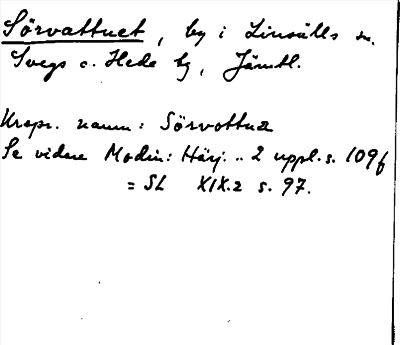 Sörvattnet, by i Linsälls sn.
Svegs o. Hede tg, Jämtl.
Urspr. namn: Sörvottna
Se vidare Modin: Härj. .. 2 uppl. s. 109f
= SL XIX.2 s. 97.